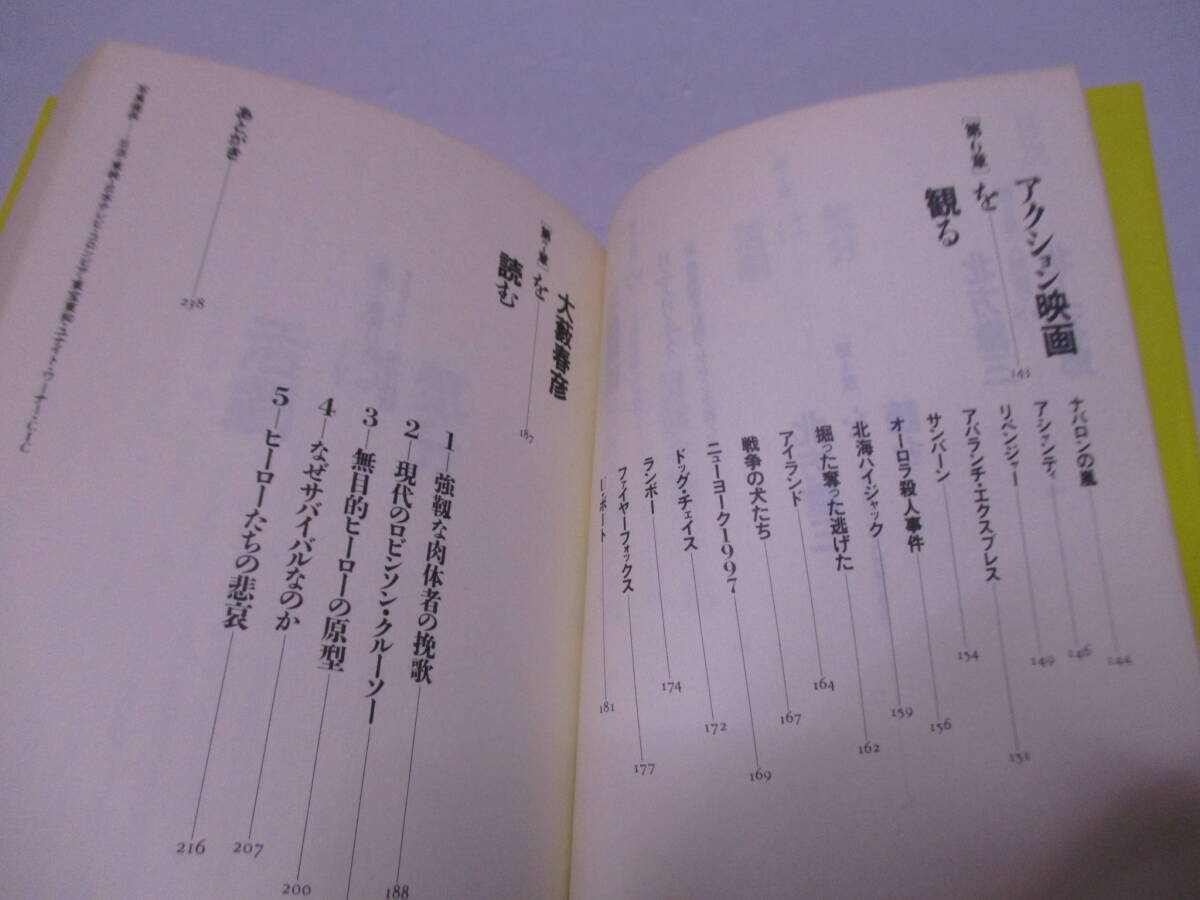 ［第6章］
アクション映画
を
観る
143
ナバロンの嵐
144
アシャンティ
146
リベンジャー
149
アバランチ・エクスプレス
151
サンバーン
154
オーロラ殺人事件
156
北海ハイジャック
159
掘った奪った逃げた
162
アイランド
164
戦争の犬たち
167
ニューヨーク1997
169
ドッグ・チェイス
172
ランボー
174
ファイヤーフォックス
177
U・ボート
181
［第7章］
大藪春彦
を
読む
187
1―強靱な肉体者の挽歌
188
2―現代のロビンソン・クルーソー
3―無目的ヒーローの原型
200
4―なぜサバイバルなのか
207
5―ヒーローたちの悲哀
216
あとがき
238